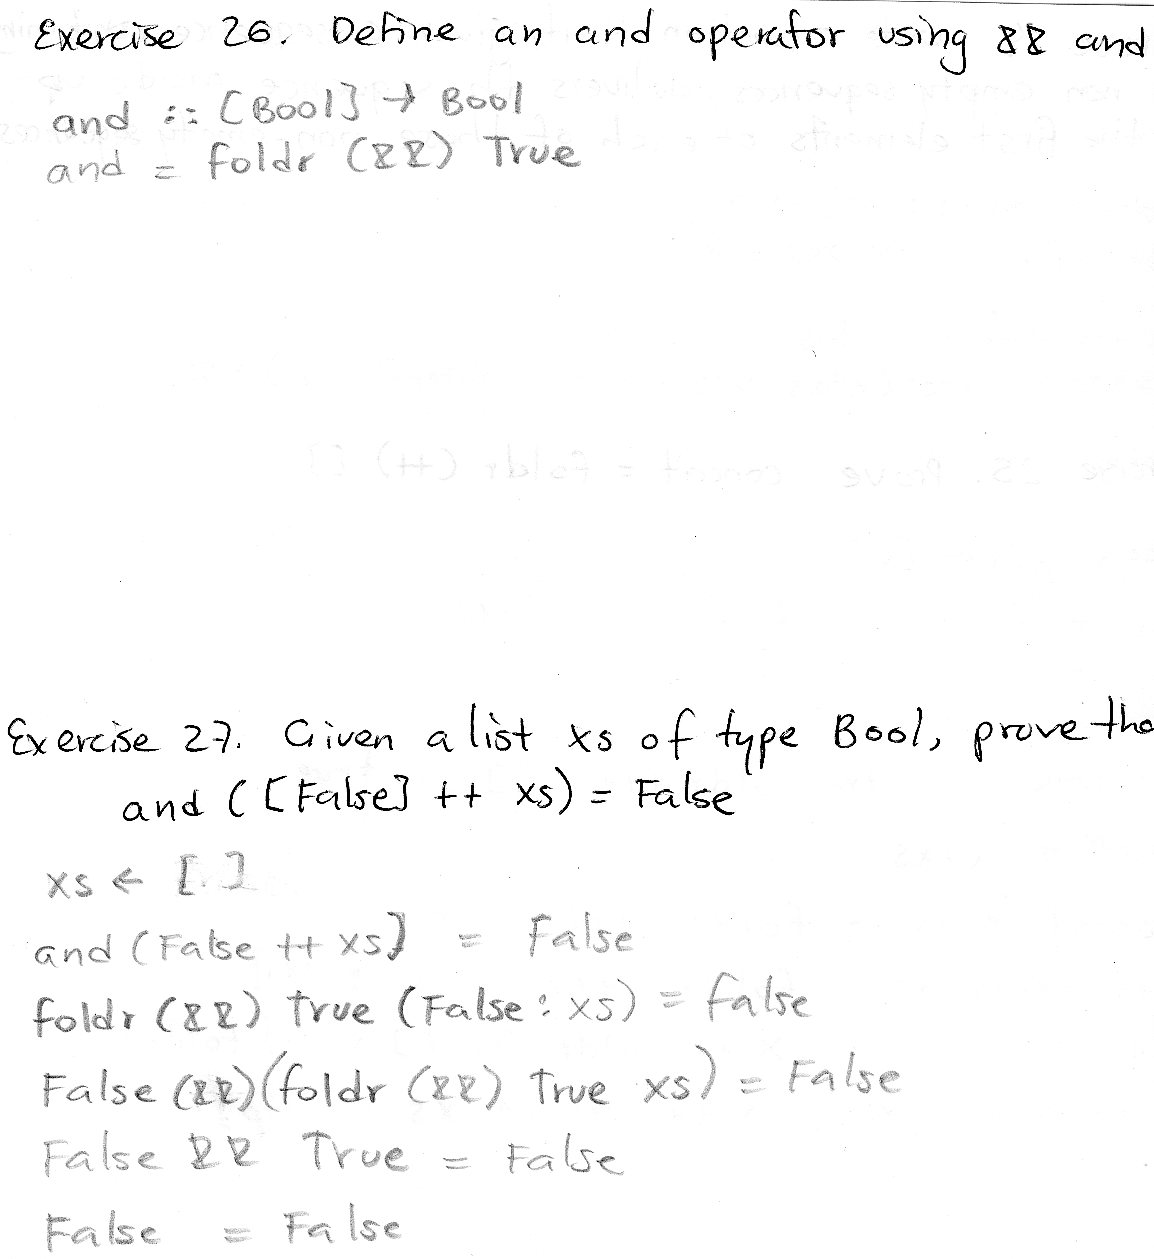 Exercise 26. Define an and operator using && and
and :: [Bool] → Bool
and = foldr (&&) True
Exercise 27. Given a list xs of type Bool, prove tha
and ([False] ++ xs) = False
xs ← []
and (False ++ xs) = False
foldr (&&) true (False : xs) = false
False (&&)(foldr (&&) True xs) = False
False && True = False
False = False